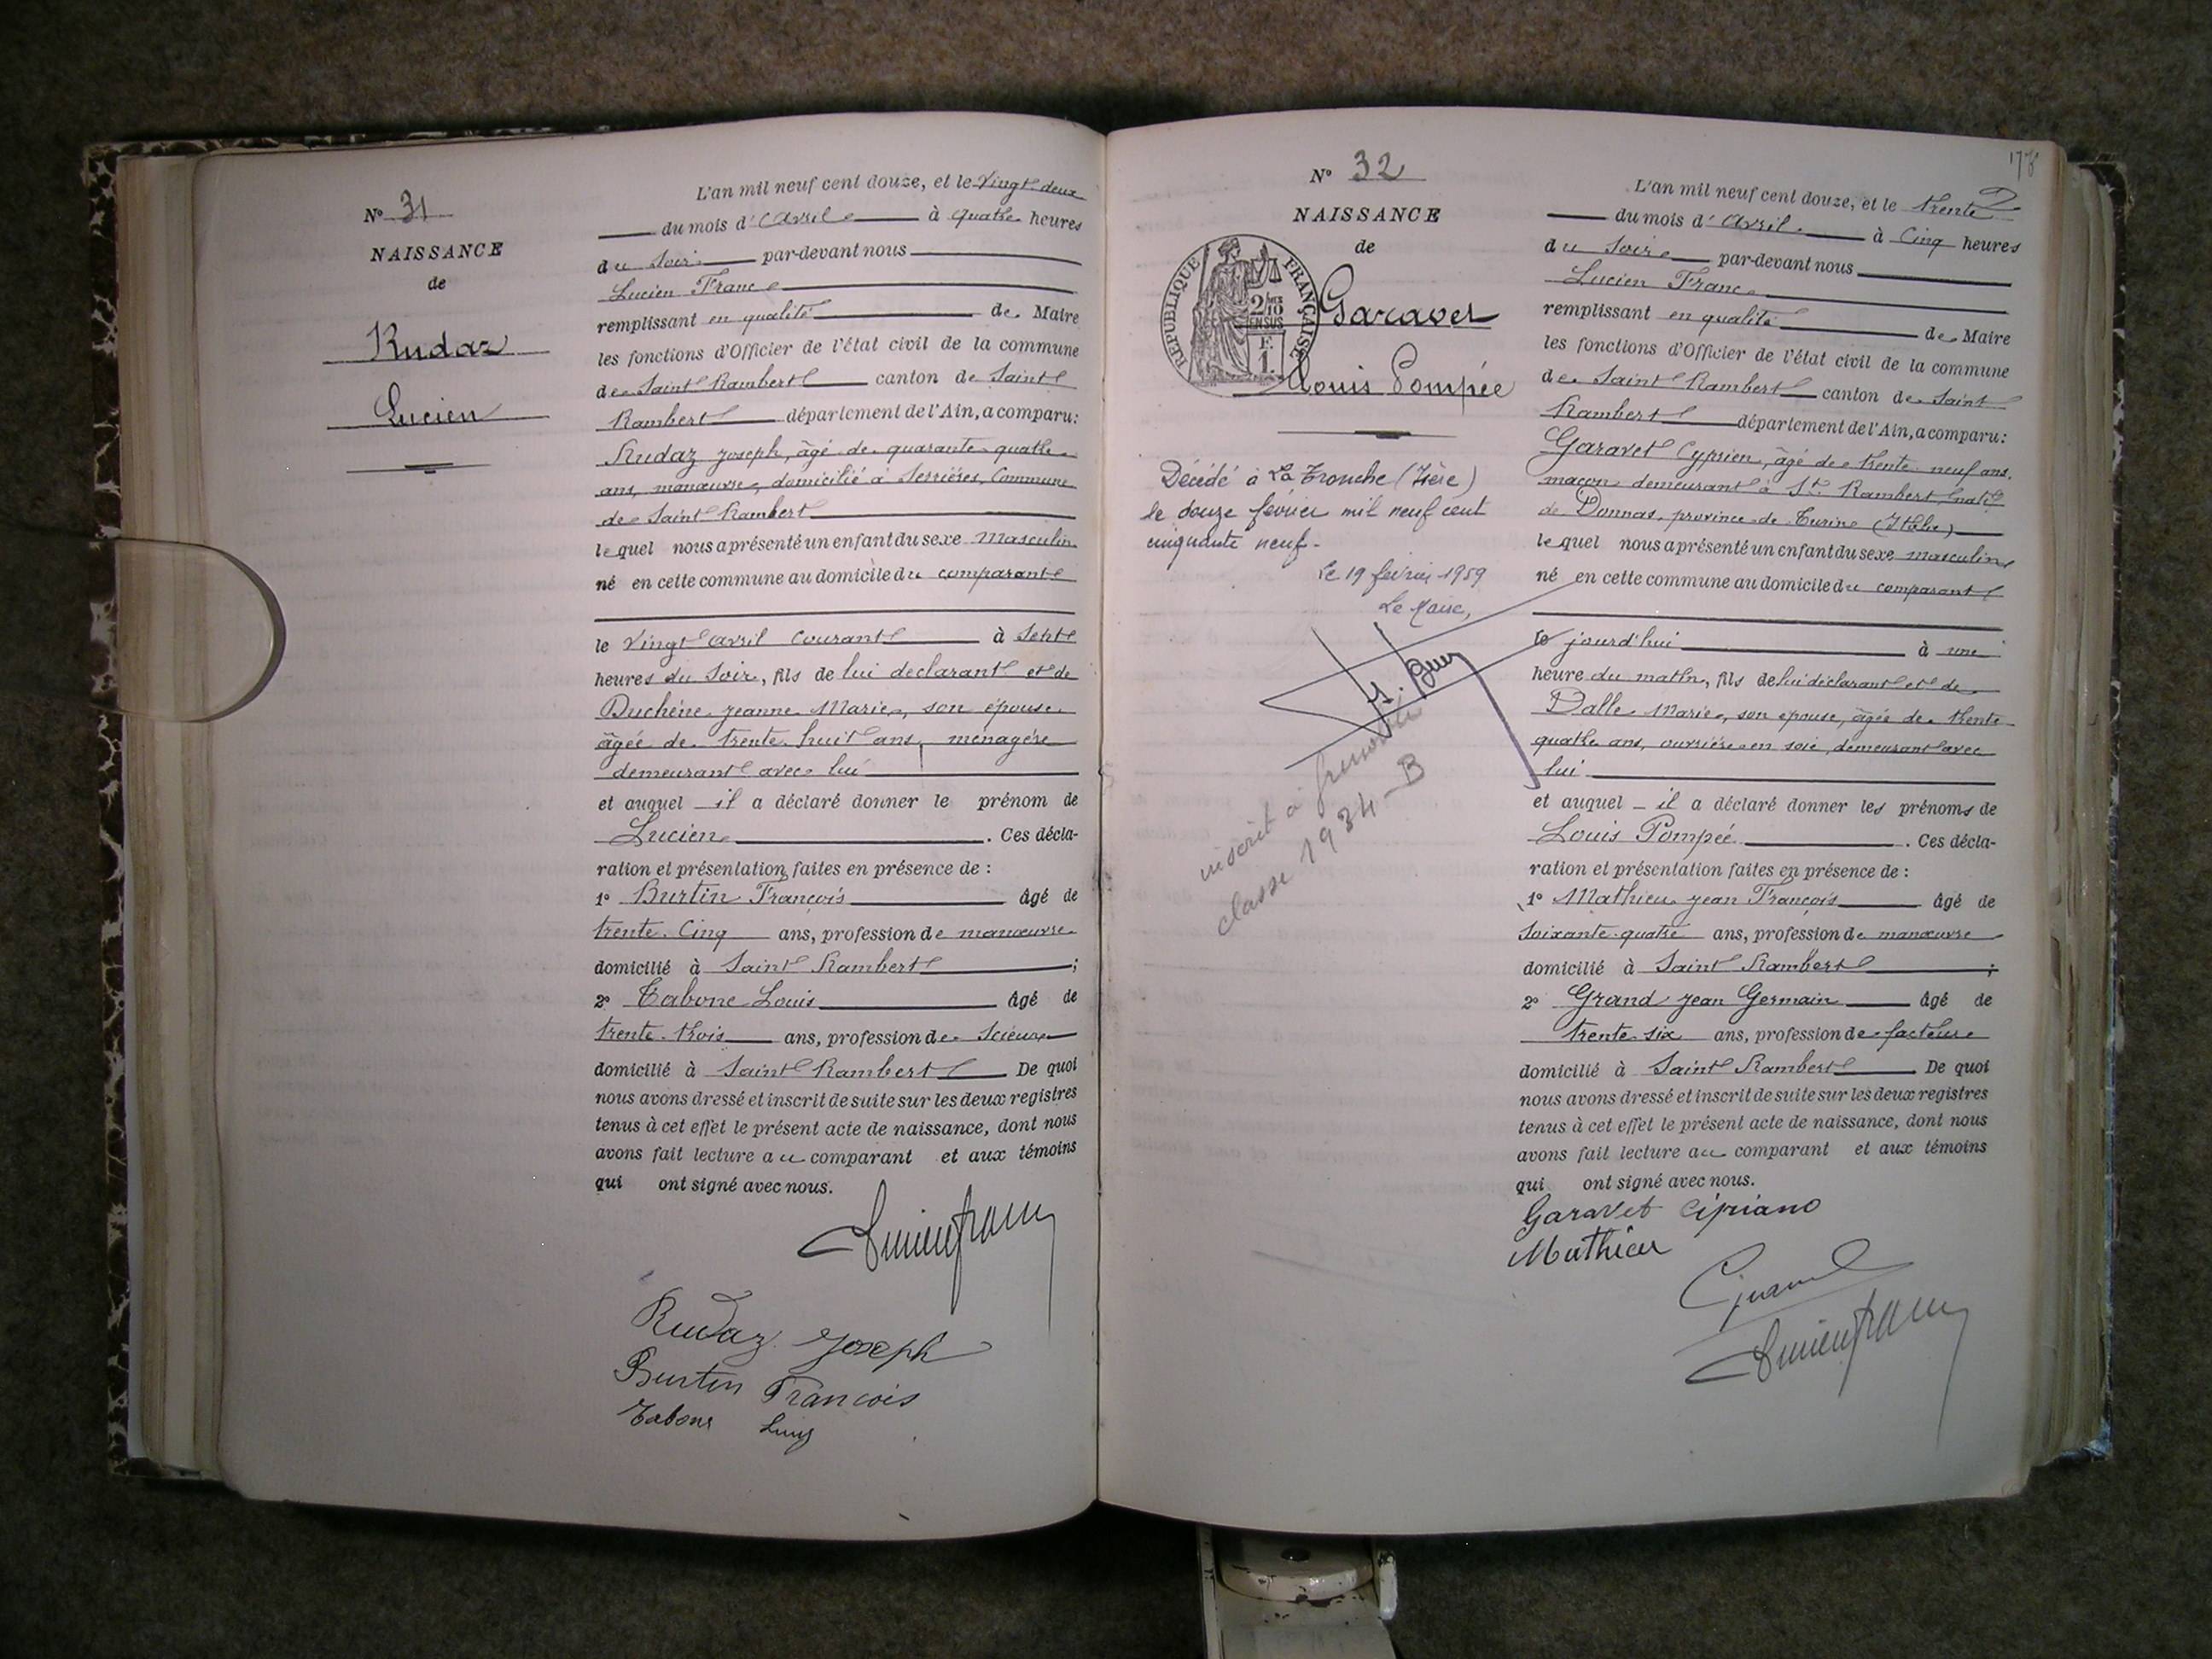 N° 31
NAISSANCE
de
Rudaz
Lucien
L'an mil neuf cent douze, et le Vingt deux
du mois d'Avril à quatre heures
du Soir par-devant nous
Lucien Franc
remplissant en qualité de Maire
les fonctions d'Officier de l'état civil de la commune
de Saint Rambert canton de Saint
Rambert département de l'Ain, a comparu:
Rudaz Joseph, âgé de quarante quatre
ans, manœuvre, domicilié à Serrières, Commune
de Saint Rambert
lequel nous a présenté un enfant du sexe Masculin
né en cette commune au domicile du comparant
le Vingt Avril Courant à Sept
heures du Soir, fils de lui déclarant et de
Duchène Jeanne Marie, son épouse
âgée de trente huit ans, ménagère
demeurant avec lui
et auquel il a déclaré donner le prénom de
Lucien. Ces décla-
ration et présentation faites en présence de :
1° Burtin François âgé de
trente-Cinq ans, profession de manœuvre
domicilié à Saint Rambert ;
2° Tabone Louis âgé de
trente-trois ans, profession de Scieur
domicilié à Saint Rambert De quoi
nous avons dressé et inscrit de suite sur les deux registres
tenus à cet effet le présent acte de naissance, dont nous
avons fait lecture au comparant et aux témoins
qui ont signé avec nous.
Lucien Franc
Rudaz Joseph
Burtin Francois
Tabone
178
2
N° 32
NAISSANCE
de
REPUBLIQUE FRANÇAISE
2/10
EN SUS
F.
1.
Garavet
Louis Pompée
Décédé à La Tronche (Isère)
le douze février mil neuf cent
cinquante neuf.
Le 19 février 1959
Le Maire,
inscrit à Grenoble
classe 1934-B
L'an mil neuf cent douze, et le trente
du mois d'Avril à Cinq heures
du Soir par-devant nous
Lucien Franc
remplissant en qualité de Maire
les fonctions d'Officier de l'état civil de la commune
de Saint Rambert canton de Saint
Rambert département de l'Ain, a comparu:
Garavet Cyprien, âgé de trente neuf ans,
maçon demeurant à St. Rambert, natif
de Donnas, province de Turin (Italie)
lequel nous a présenté un enfant du sexe masculin
né en cette commune au domicile du comparant
ce jourd'hui à une
heure du matin, fils de lui déclarant et de
Dalle Marie, son épouse, âgée de trente
quatre ans, ouvrière en soie, demeurant avec
lui
et auquel il a déclaré donner les prénoms de
Louis Pompée. Ces décla-
ration et présentation faites en présence de :
1° Mathieu Jean François âgé de
Soixante-quatre ans, profession de manœuvre
domicilié à Saint Rambert ;
2° Grand Jean Germain âgé de
trente-six ans, profession de facteur
domicilié à Saint Rambert De quoi
nous avons dressé et inscrit de suite sur les deux registres
tenus à cet effet le présent acte de naissance, dont nous
avons fait lecture au comparant et aux témoins
qui ont signé avec nous.
Garavet Cipriano
Mathieu
Grand
Lucien Franc